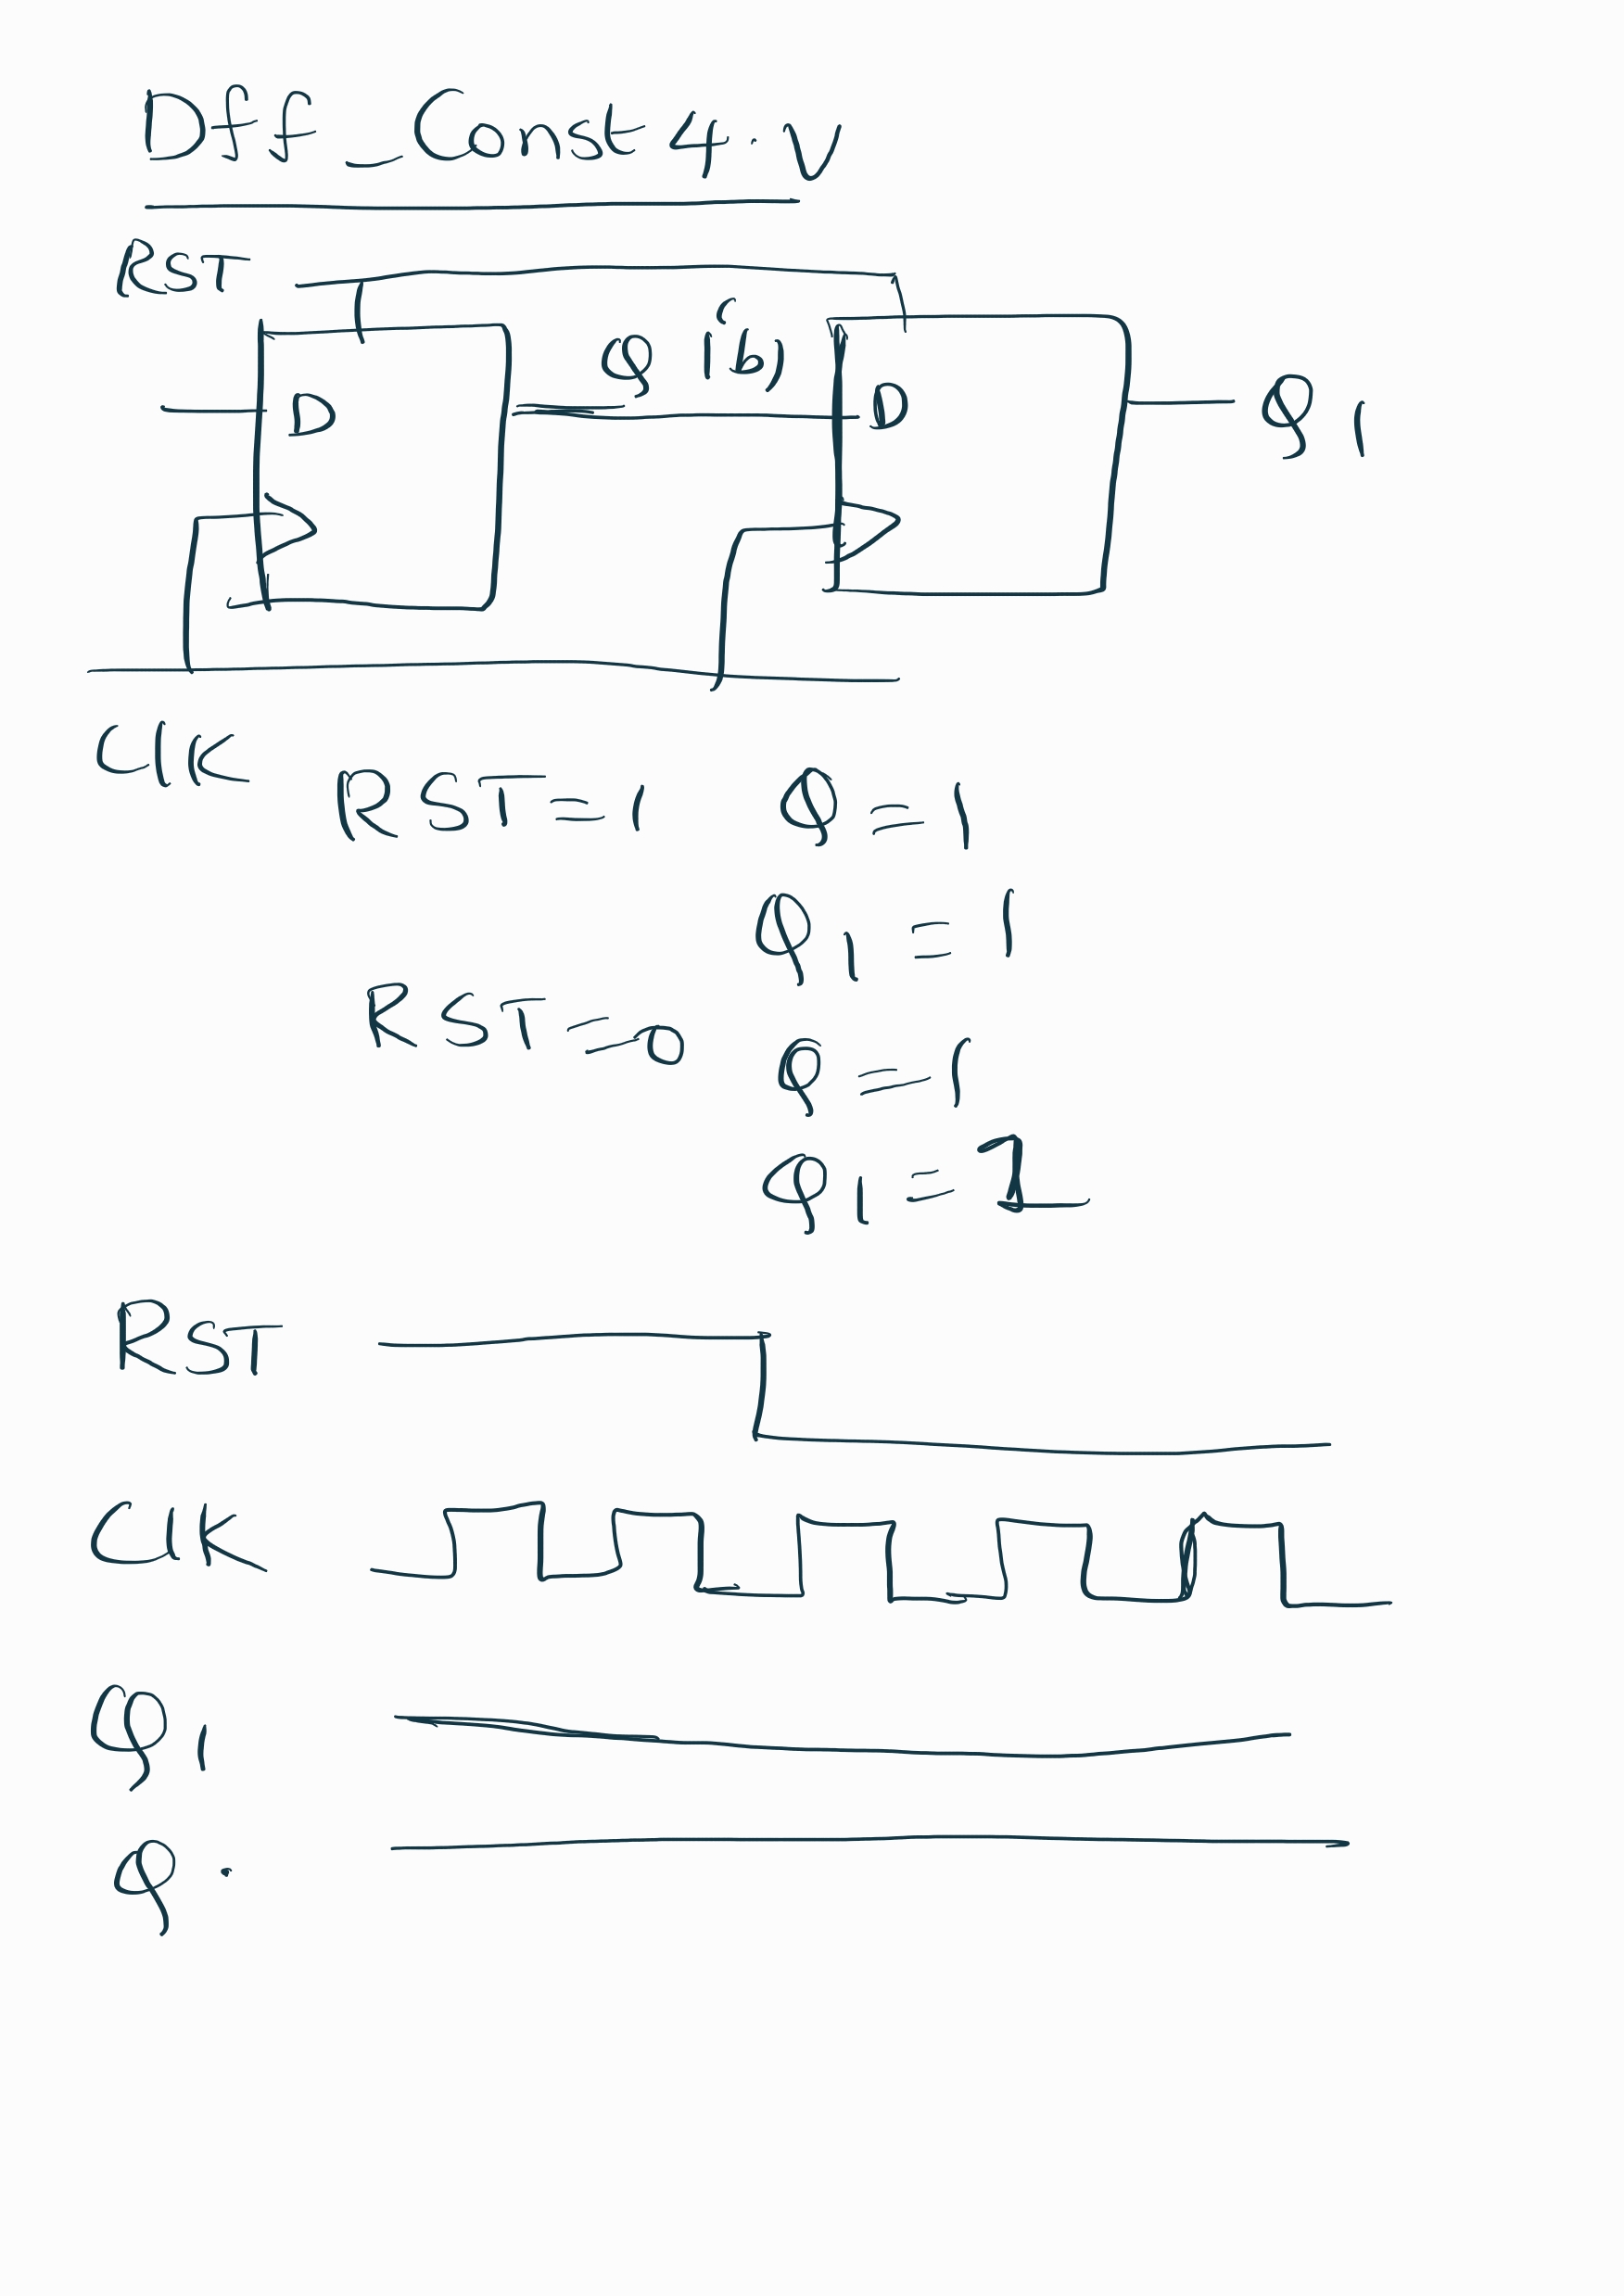 Dff_Const4.v
RST
D
Q
D
Q1
Clk
RST=1 Q=1
Q1=1
RST=0
Q=1
Q1=1
RST
Clk
Q1
Q.